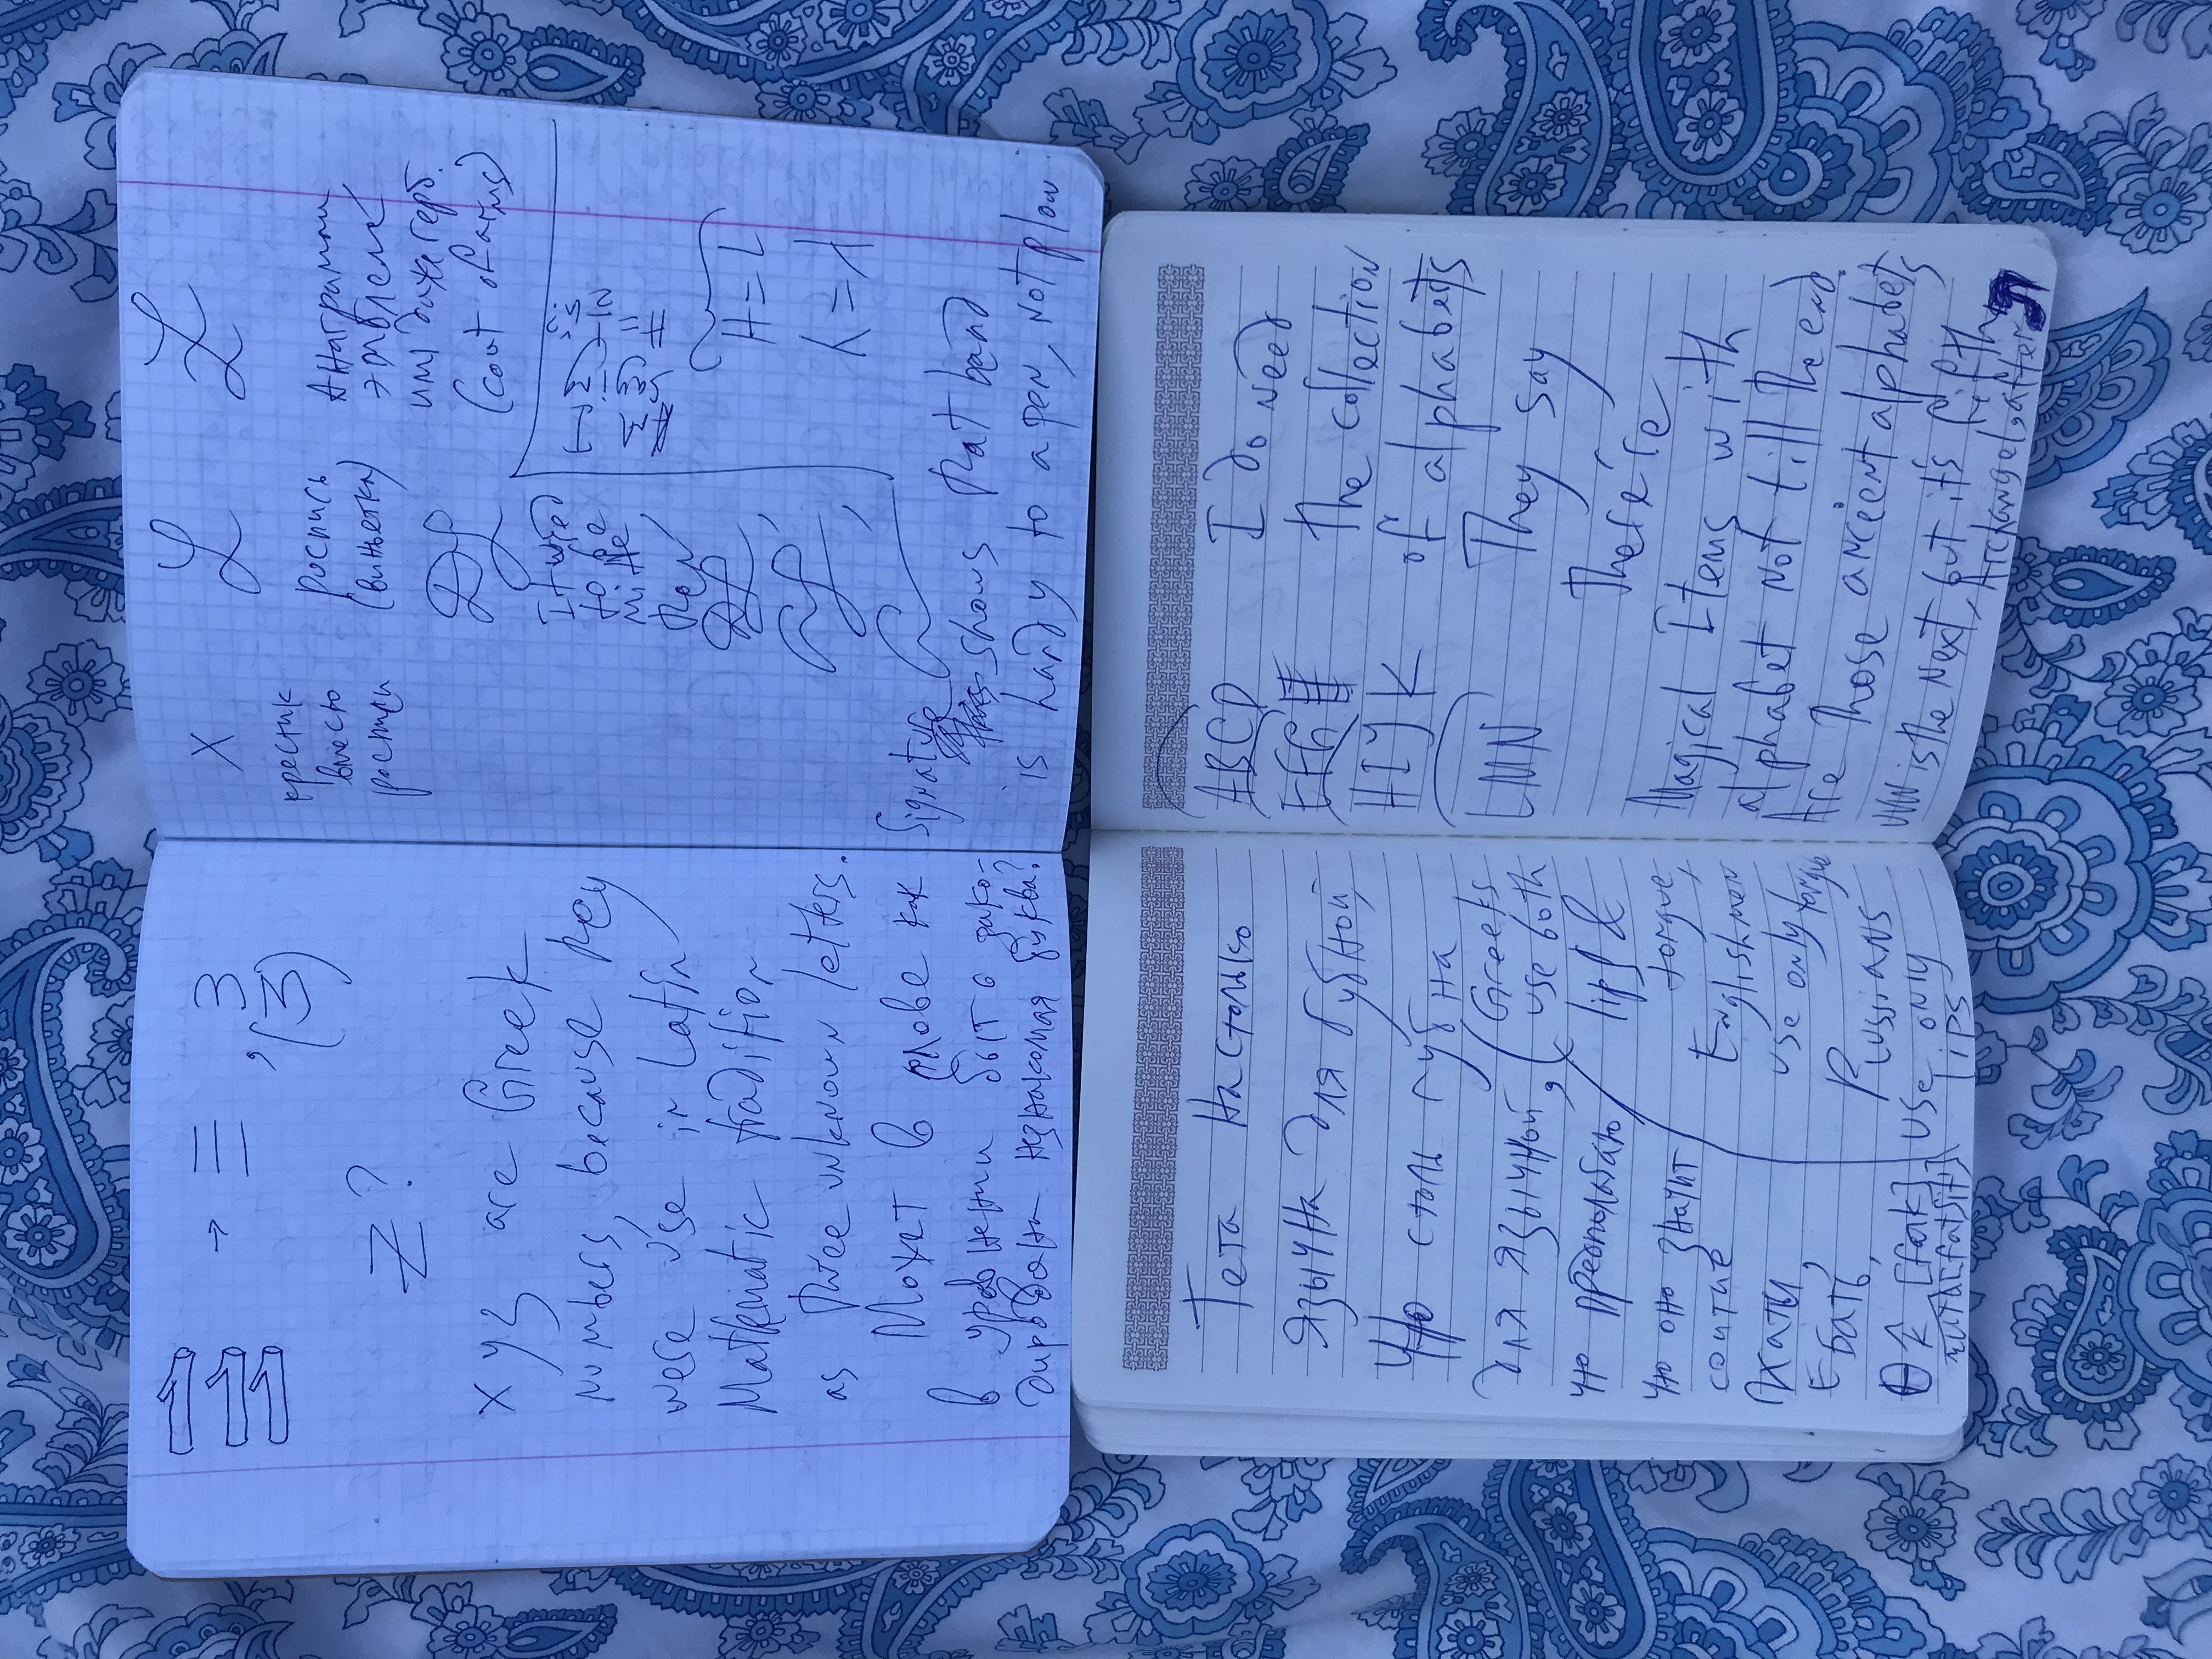 → ≡ , 3
(3)
Z?
x y z are Greek
numbers, because they
were use in Latin
Mathematic tradition
as three unknown letters.
Может в слове как
в уровнении быть зако-
дирована незнакомая буква?
X
крестик
вместо
росписи
роспись
(виньетка)
DL
It used
to be
then
DL,
Анаграмма
эмблема
или даже герб.
(cout of arms)
AM I
sayim
H=L
λ=λ
Signature
shows that hand
is handy to a pen, not plow
Тета настолько
язычна для губной,
что столь губна
для язычной,
что предполагаю
что оно значит
соитие
Пхати,
Ебать,
[fək]
(Greeks
use both
lips &
torgue,
Englishmen
use only torgue
Russians
use only
lips
ABCD
EFG
HIJK
LMN
I do need
the collection
of alphabets
They say
there're
Magical Items with
alphabet not till the end.
Are those ancient alphabets
is the next, but it's fifth
Archangel, after Л